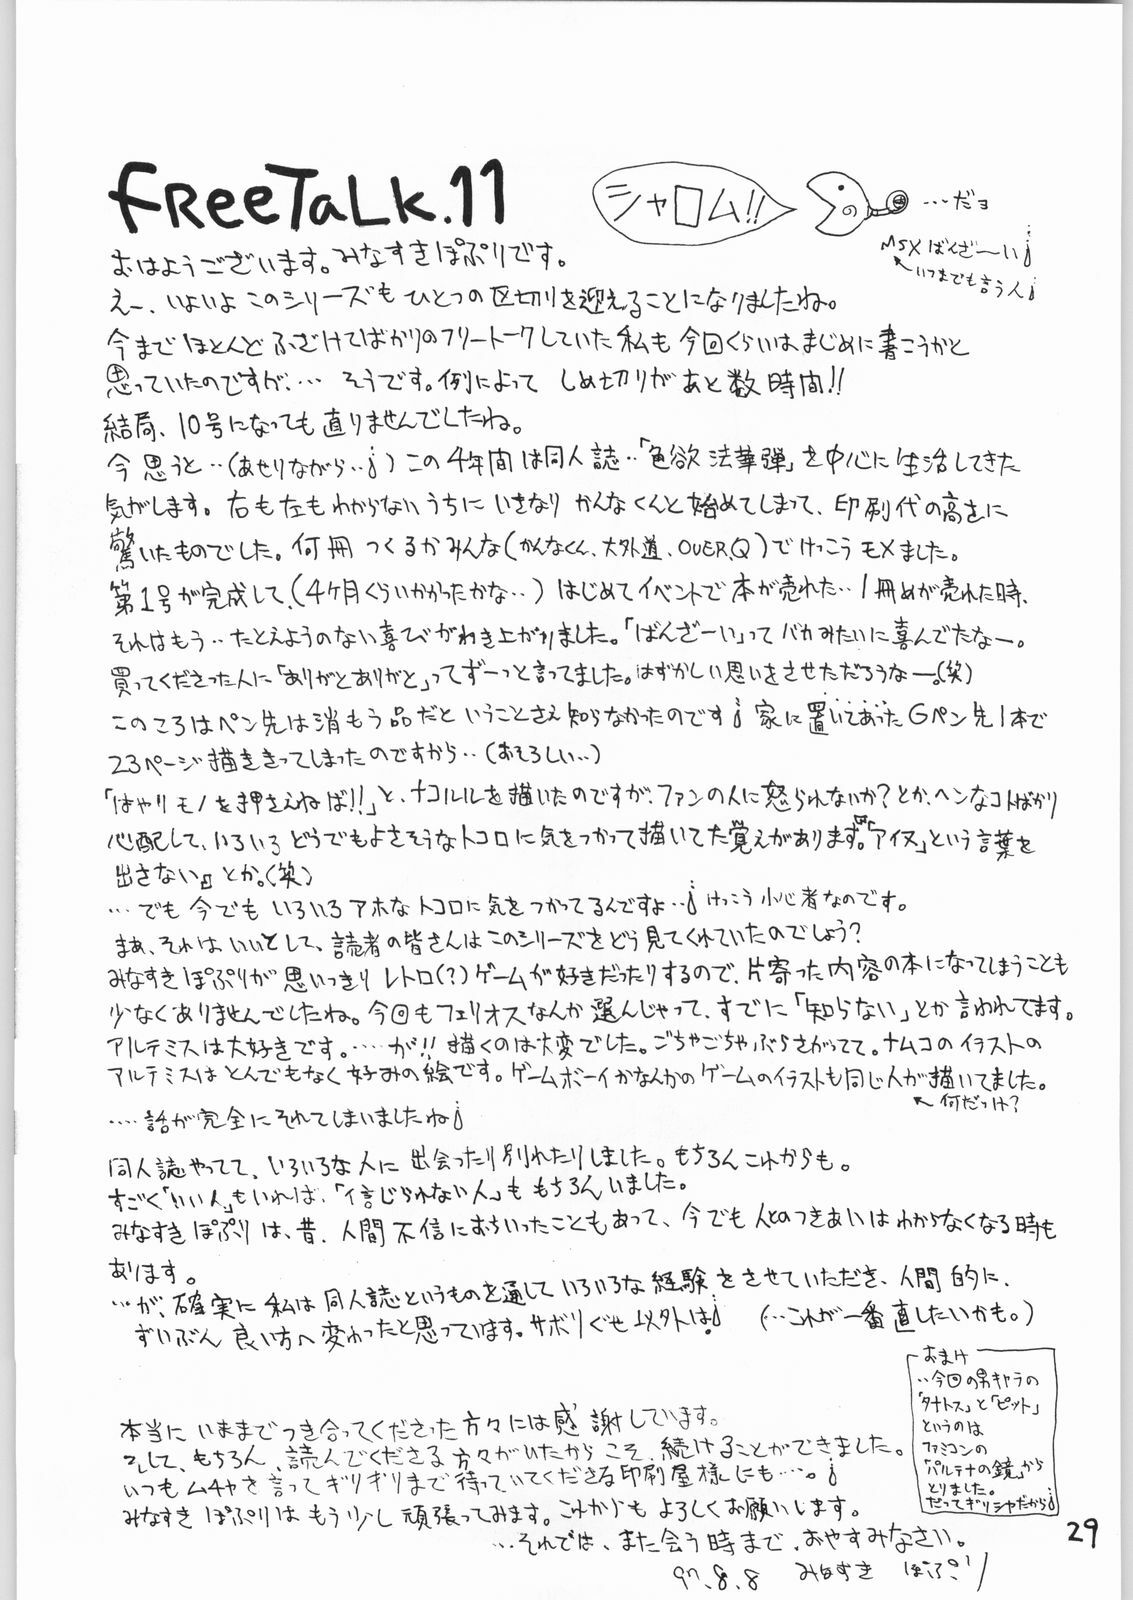 FReeTaLk.11
シャロム!!
…だョ
MSXばんざーい
いつまでも言う人
おはようございます。みなすきぽぷりです。
えー、いよいよこのシリーズもひとつの区切りを迎えることになりましたね。
今までほとんどふざけてばかりのフリートークしていた私も今回くらいはまじめに書こうかと
思っていたのですが、… そうです。例によって しめ切りがあと数時間!!
結局、10号になっても直りませんでしたね。
今思うと‥(あせりながら‥) この4年間は同人誌‥「色欲法華弾」を中心に生活してきた
気がします。右も左もわからないうちにいきなり かんなくんと始めてしまって、印刷代の高さに
驚いたものでした。何冊つくるかみんな(かんなくん、大外道、OVER.Q)でけっこうモメました。
第1号が完成して、(4ヶ月くらいかかったかな‥) はじめてイベントで本が売れた‥1冊めが売れた時、
それはもう‥たとえようのない喜びがわき上がりました。「ばんざーい」ってバカみたいに喜んでたなー。
買ってくださった人に「ありがとありがと」ってずーっと言ってました。はずかしい思いをさせただろうなー。(笑)
このころはペン先は消もう品だということさえ知らなかったのです 家に置いてあったGペン先1本で
23ページ描ききってしまったのですから‥(おそろしい‥)
「はやりモノを押さえねば!!」と、ナコルルを描いたのですが、ファンの人に怒られないか?とか、ヘンなコトばかり
心配して、いろいろどうでもよさそうなトコロに気をつかって描いてた覚えがあります。『「アイヌ」という言葉を
出さない』とか。(笑)
…でも今でもいろいろアホなトコロに気をつかってるんですよ‥ けっこう小心者なのです。
まあ、それはいいとして、読者の皆さんはこのシリーズをどう見てくれていたのでしょう?
みなすきぽぷりが思いっきりレトロ(?)ゲームが好きだったりするので、片寄った内容の本になってしまうことも
少なくありませんでしたね。今回もフェリオスなんか選んじゃって、すでに「知らない」とか言われてます。
アルテミスは大好きです。……が!! 描くのは大変でした。ごちゃごちゃぶらさがってて。ナムコのイラストの
アルテミスはとんでもなく好みの絵です。ゲームボーイかなんかのゲームのイラストも同じ人が描いてました。
何だっけ?
‥‥話が完全にそれてしまいましたね
同人誌やってて、いろいろな人に出会ったり別れたりしました。もちろんこれからも。
すごく「いい人」もいれば、「信じられない人」ももちろんいました。
みなすきぽぷりは、昔、人間不信におちいったこともあって、今でも人とのつきあいはわからなくなる時も
あります。
…が、確実に私は同人誌というものを通していろいろな経験をさせていただき、人間的に、
ずいぶん良い方へ変わったと思っています。サボリぐせ以外は! (…これが一番直したいかも。)
本当にいままでつき合ってくださった方々には感謝しています。
そして、もちろん、読んでくださる方々がいたからこそ、続けることができました。
いつもムチャを言ってギリギリまで待っていてくださる印刷屋様にも…。
みなすきぽぷりはもう少し頑張ってみます。これからもよろしくお願いします。
…それでは、また会う時まで、おやすみなさい。
97.8.8 みなすき ぽぷり
おまけ
‥今回の男キャラの
「タナトス」と「ピット」
というのは
ファミコンの
「パルテナの鏡」から
とりました。
だってギリシャだから
29